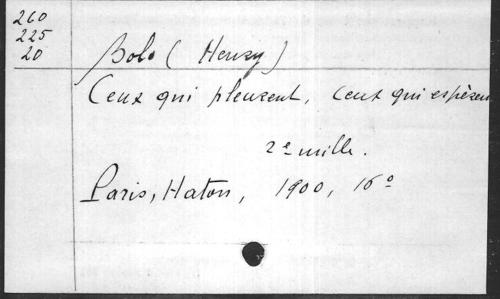 260
225
20
Bolo (Henry)
Ceux qui pleurent, ceux qui espèrent
2e mille.
Paris, Haton, 1900, 16°